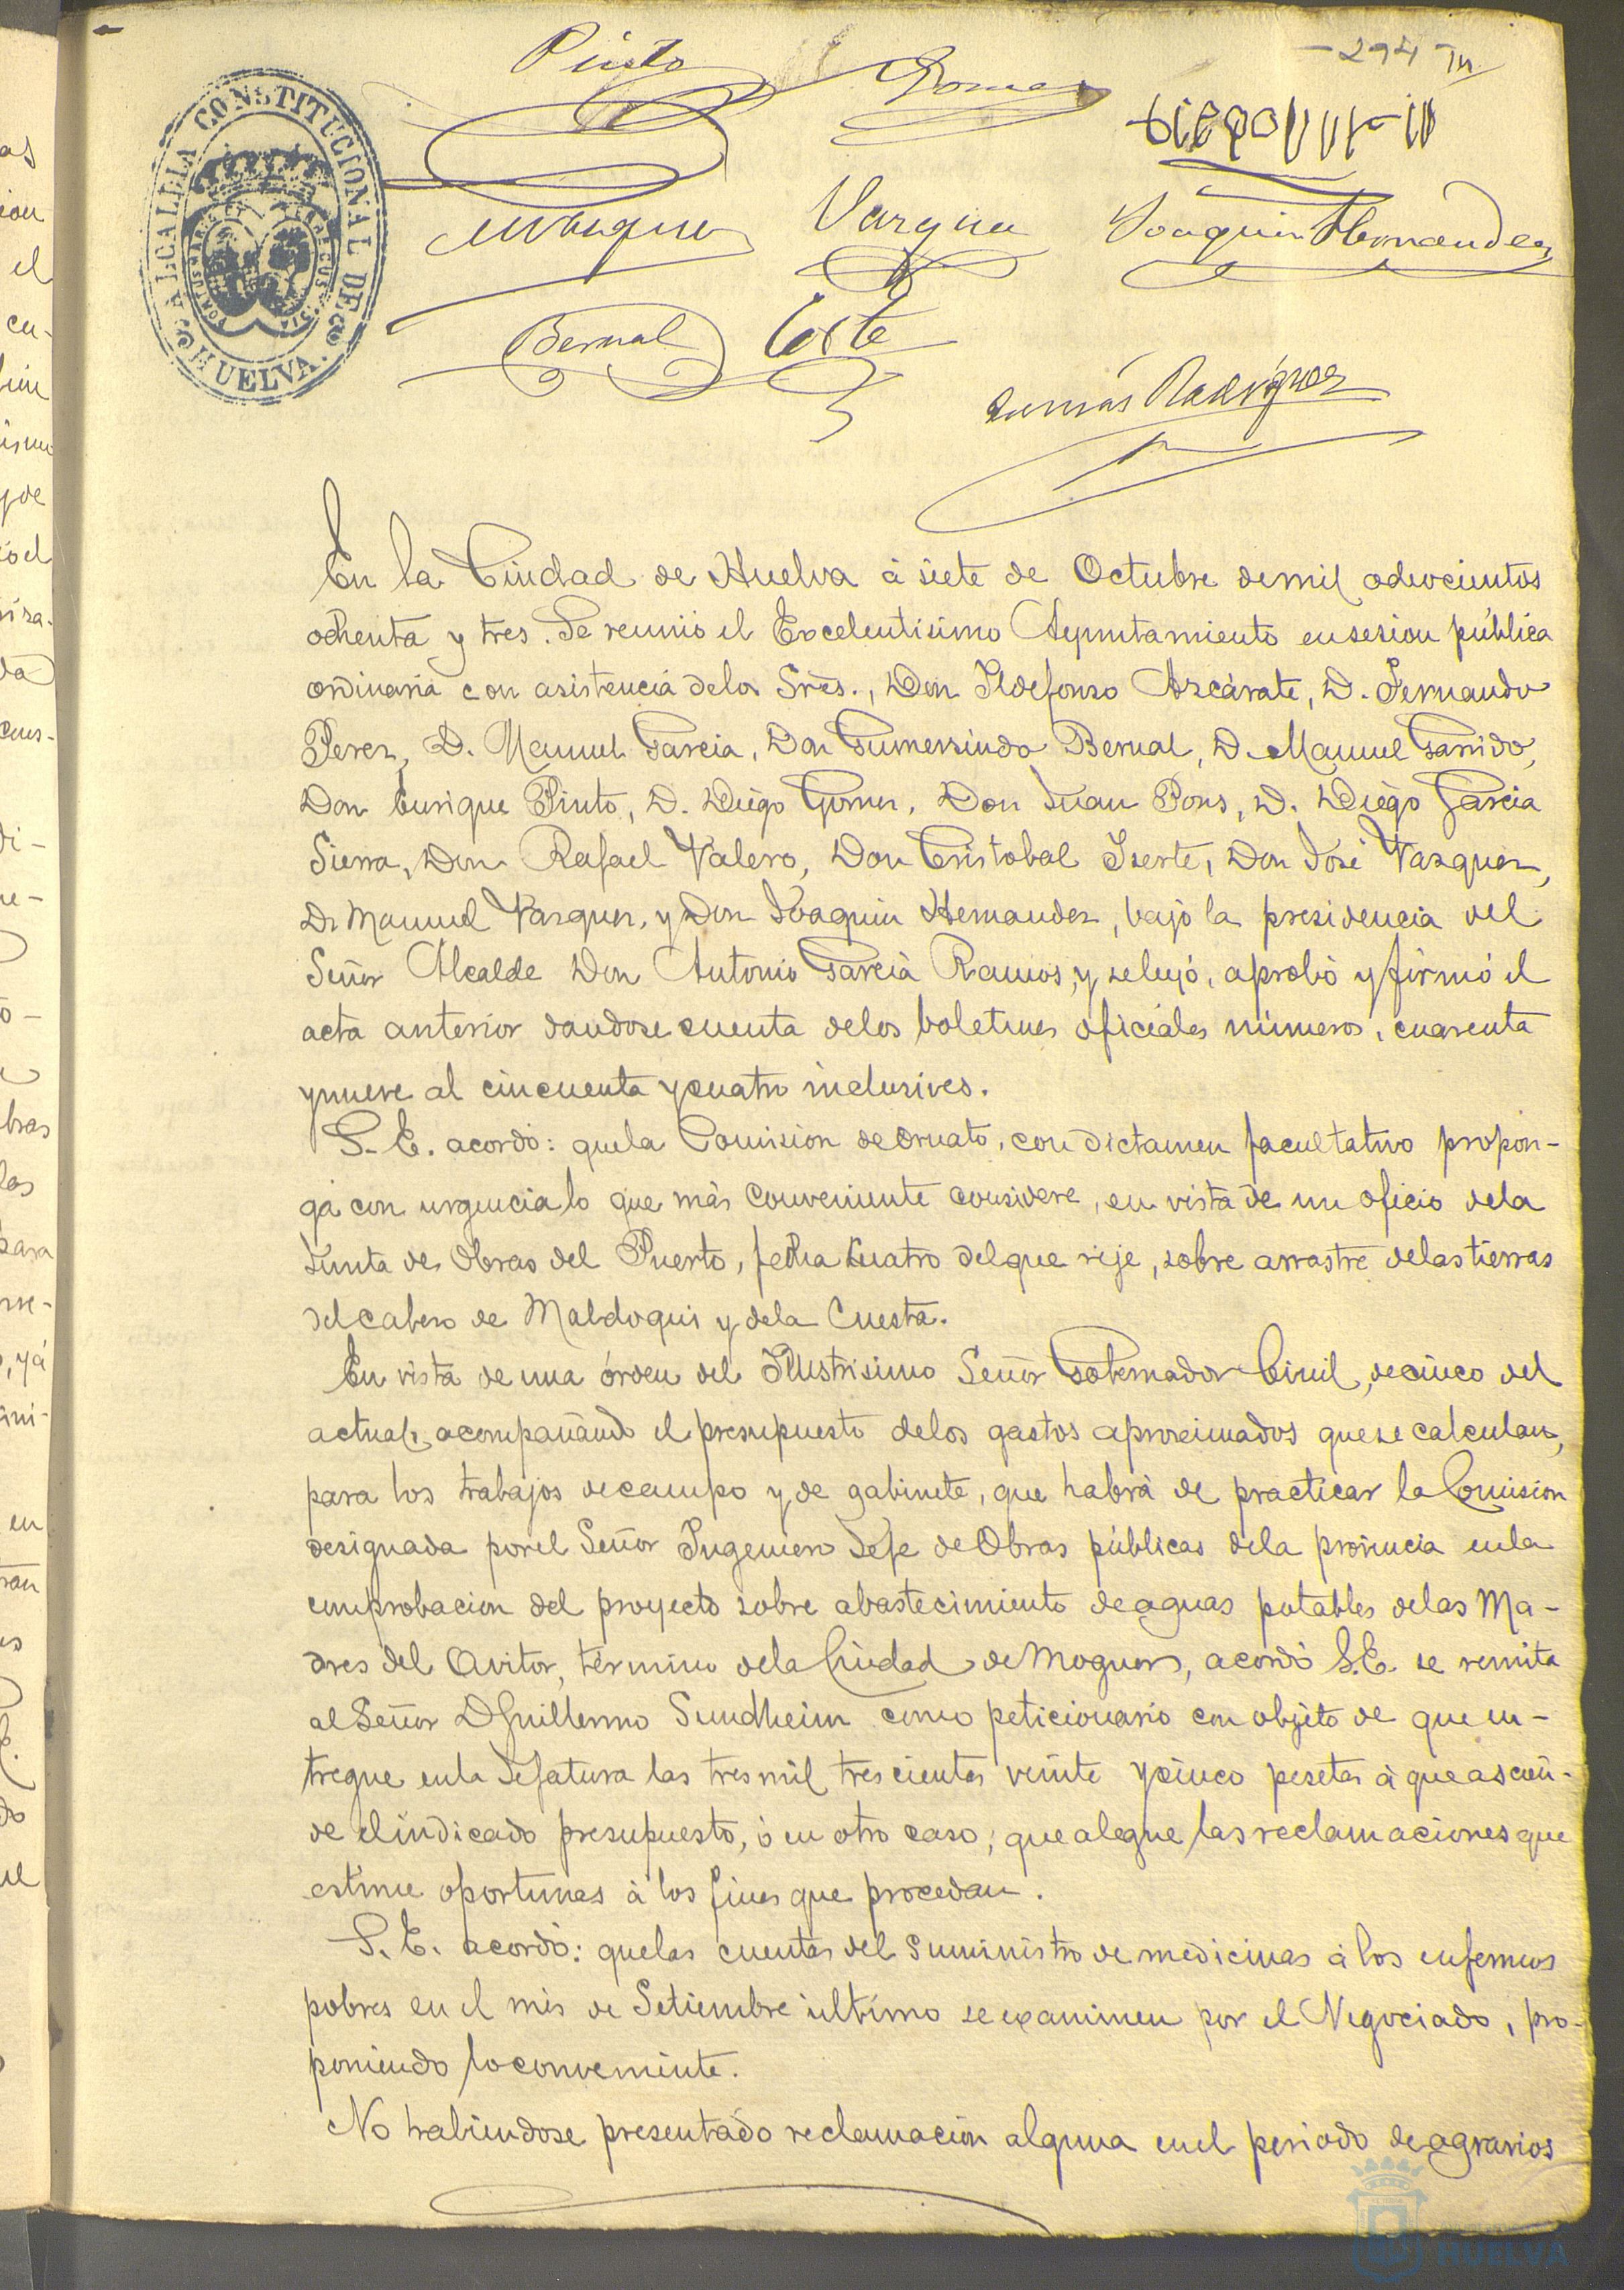 - 274 -
ALCALDIA CONSTITUCIONAL DE HUELVA.
Pinto
Gomez
Vazquez
Vazquez
Joaquin Hernandez
Bernal
Tomás Rodriguez
En la Ciudad de Huelva á siete de Octubre de mil odiocientos
ochenta y tres. Se reunió el Excelentisimo Ayuntamiento en sesion pública
ordinaria con asistencia de los Sres., Don Ildefonso Azcárate, D. Fernando
Perez, D. Manuel Garcia, Don Gumersindo Bernal, D. Manuel Garrido,
Don Enrique Pinto, D. Diego Gomez, Don Juan Pons, D. Diego Garcia
Sierra, Don Rafael Valero, Don Cristobal Iserte, Don José Vazquez,
D. Manuel Vazquez, y Don Joaquin Hernandez, bajo la presidencia del
Señor Alcalde Don Antonio Garcia Ramos, y se leyó, aprobó y firmó el
acta anterior dandose cuenta de los boletines oficiales números, cuarenta
y nueve al cincuenta y cuatro inclusives.
S. E. acordó: que la Comision de Ornato, con dictamen facultativo propon-
ga con urgencia lo que más conveniente considere, en vista de un oficio de la
Junta de Obras del Puerto, fecha cuatro del que rije, sobre arrastre de las tierras
del cabezo de Maldoqui y de la Cuesta.
En vista de una órden del Ilustrisimo Señor Gobernador Civil, de cinco del
actual, acompañando el presupuesto de los gastos aproximados que se calculan,
para los trabajos de campo y de gabinete, que habrá de practicar la Comision
designada por el Señor Ingeniero Jefe de Obras públicas de la provincia en la
comprobacion del proyecto sobre abastecimiento de aguas potables de las Ma-
dres del Avitor, término de la Ciudad de Moguer, acordó S.E. se remita
al Señor D Guillermo Sundheim como peticionario con objeto de que en-
tregue en la Jefatura las tres mil trescientas veinte y cinco pesetas á que ascien-
de el indicado presupuesto, ó en otro caso, que alegue las reclamaciones que
estime oportunas á los fines que procedan.
S. E. acordó: que las cuentas del suministro de medicinas á los enfermos
pobres en el mes de Setiembre último se examinen por el Negociado, pro-
poniendo lo conveniente.
No habiendose presentado reclamacion alguna en el periodo de agravios
HUELVA